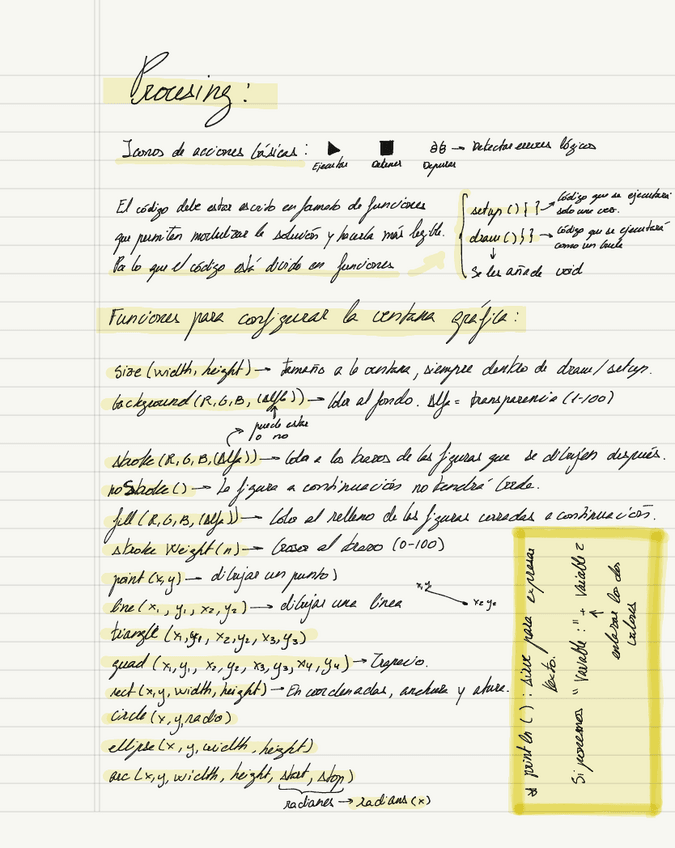 Procesing:
Iconos de acciones básicas:
Ejecutar Detener Depurar → Detectar errores lógicos
El código debe estar escrito en formato de funciones
que permiten modulizar la solución y hacerla más legible.
Por lo que el código está divido en funciones
setup () { } → código que se ejecutará
solo una vez.
draw () { } → código que se ejecutará
como un bucle
↓
Se les añade void
Funciones para configurar la ventana gráfica:
Size (width, height) → tamaño a la ventana, siempre dentro de draw/setup.
background (R, G, B, (Alfa)) → Color al fondo. Alfa = transparencia (1-100)
puede estar
o no
stroke (R, G, B, (Alfa)) → Color a los trazos de las figuras que se dibujen después.
noStroke () → La figura a continuación no tendrá borde.
fill (R, G, B, (Alfa)) → Color al relleno de las figuras cerradas a continuación.
stroke Weight (n) → Grosor al trazo (0-100)
point (x, y) → dibujar un punto)
line (x₁, y₁, x₂, y₂) → dibujar una línea x₁ y₁ x₂ y₂
triangle (x₁, y₁, x₂, y₂, x₃, y₃)
quad (x₁, y₁, x₂, y₂, x₃, y₃, x₄, y₄) → Trapecio.
rect (x, y, width, height) → En coordenadas, anchura y altura.
circle (x, y, radio)
ellipse (x, y, width, height)
arc (x, y, width, height, start, stop)
radianes → radians (x)
* println ( ) : sirve para expresar
texto.
Si ponemos " Variable : " + Variable 2
↑
enlazar los dos
valores